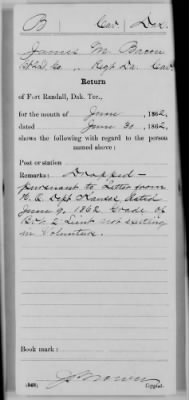 B Cav. Dak.
James M. Bacon
Co., Reg't Ia. Cav.
Return
of Fort Randall, Dak. Ter.,
for the month of June, 1862,
dated June 30, 1862,
shows the following with regard to the person
named above:
Post or station
Remarks: Dropped—
pursuant to Letter from
H. Q. Dept Kansas, dated
June 9, 1862 Grade of
Bvt. 2 Lieut not existing
in volunteers.
Book mark:
Copyist.